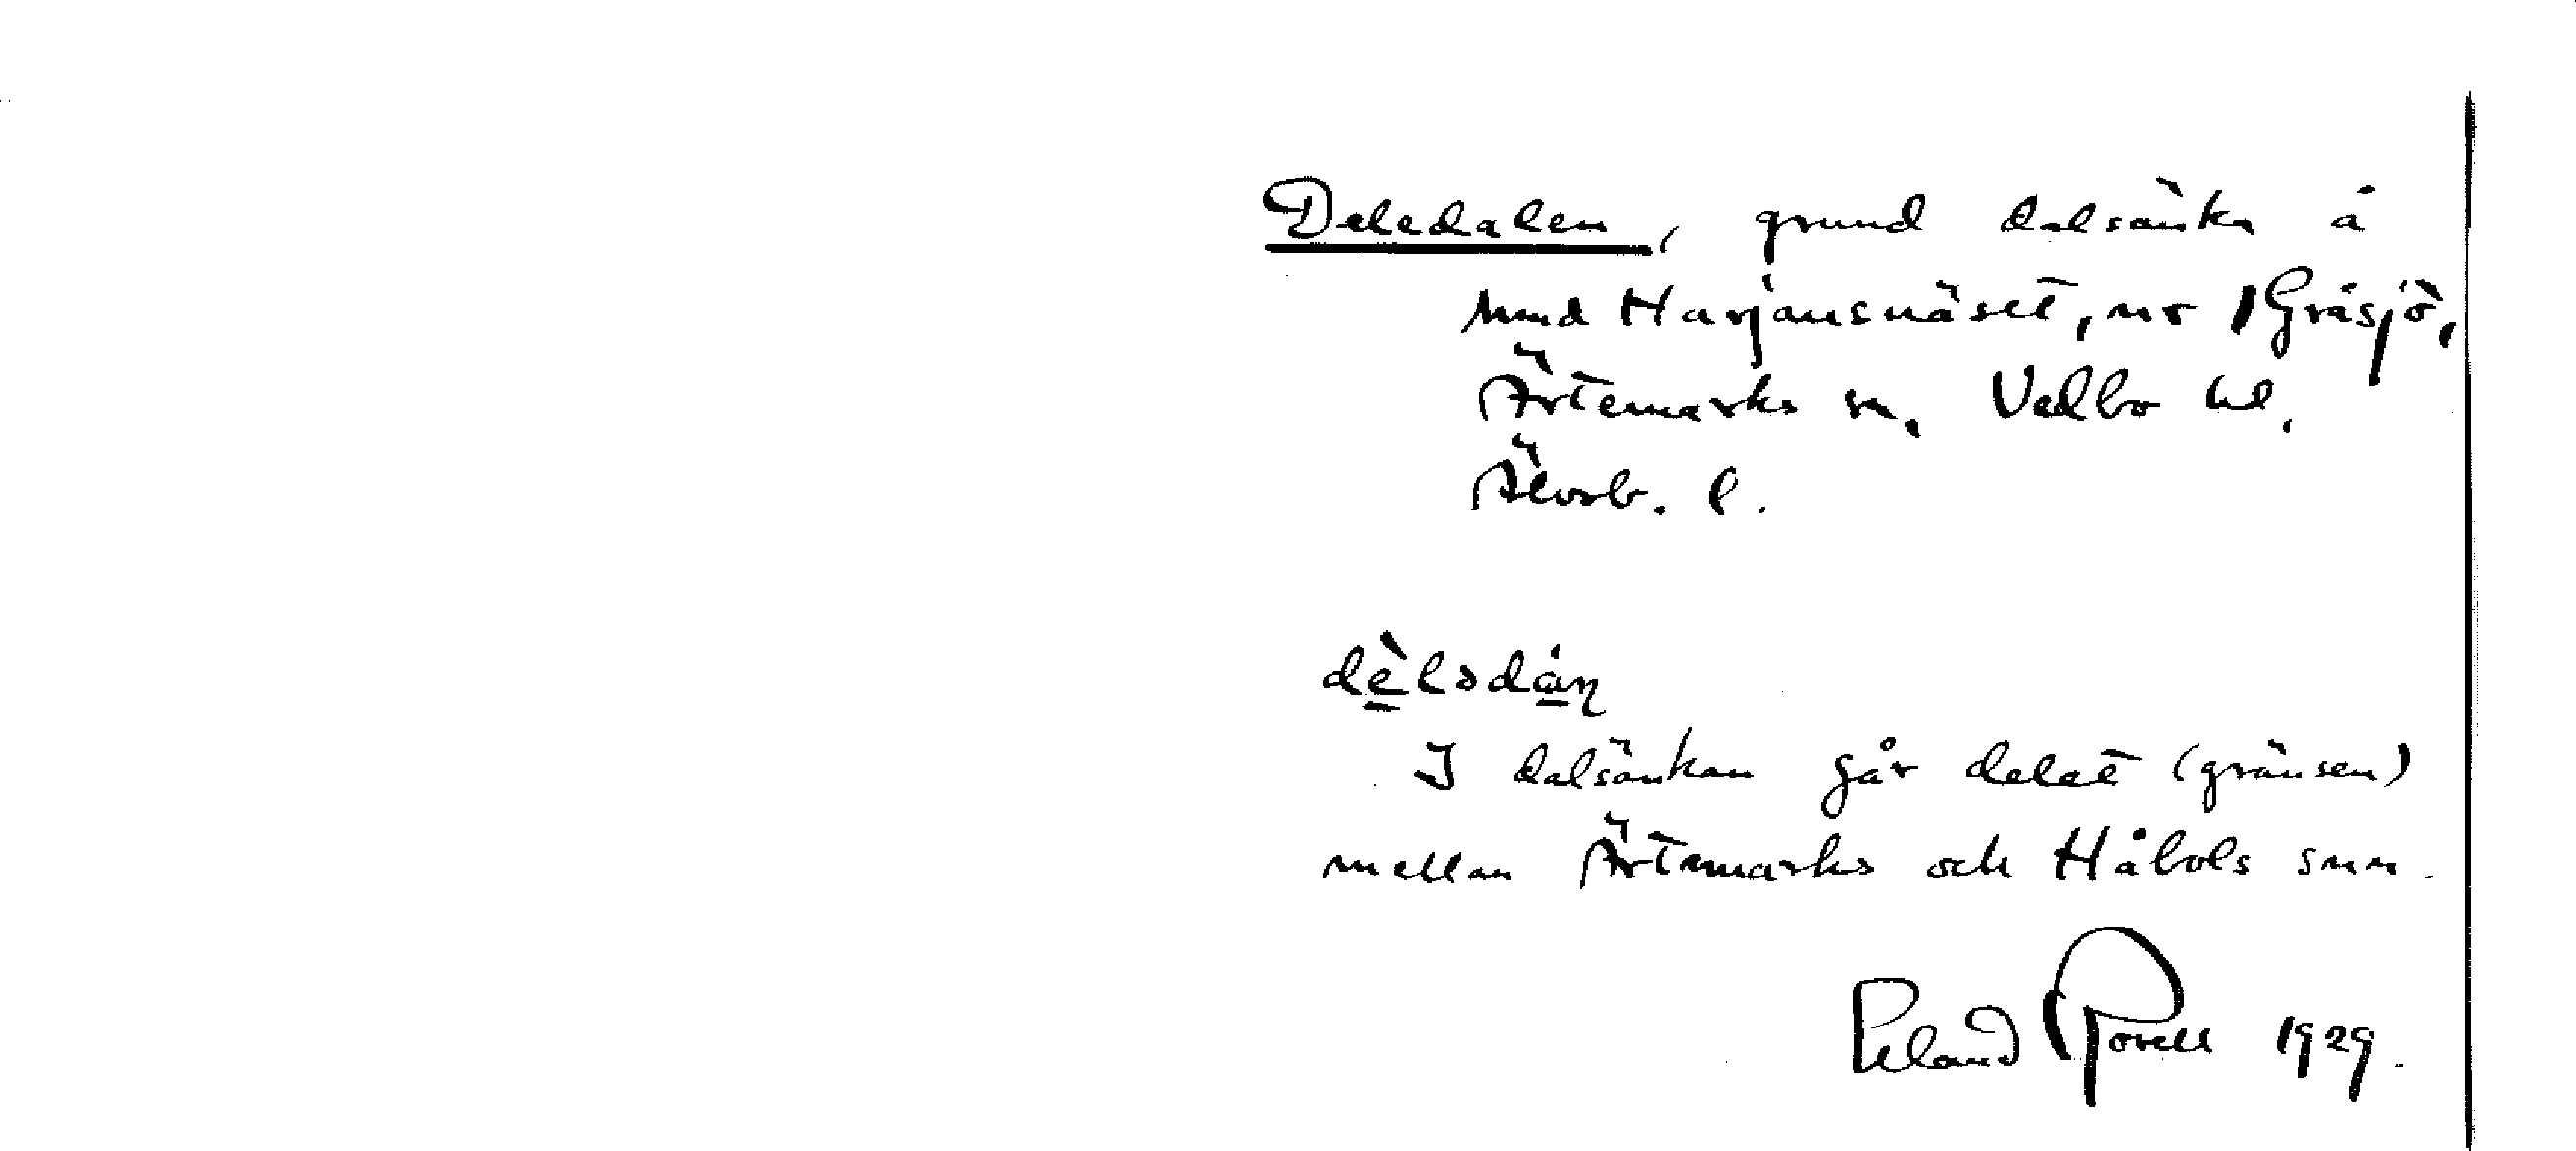 Deledalen, grund dalsänka å
hmd Harjansnäset, nr 1 Gråsjö,
Ärtemarks sn. Vedbo hd.
Älvsb. l.
dèlədán
I dalsänkan går delet (gränsen)
mellan Ärtemarks och Håbols snn.
1929.